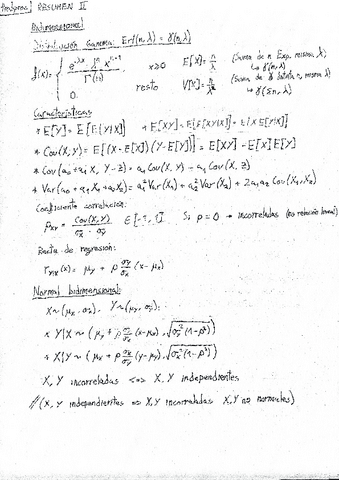 RESUMEN II
Bidimensional
Distribución Gamma: Erl(n, λ) = γ(n, λ)
f(x) = { e^{-λx} λ^n x^{n-1} / Γ(n) x≥0 E[X] = n/λ (Suma de n Exp. misma λ)
↳ γ(n, λ)
0 resto V[X] = n/λ² (Suma de γ distinta n, misma λ)
↳ γ(Σn, λ)
Características
* E[Y] = E[E[Y|X]] * E[XY] = E[E[XY|X]] = E[X E[Y|X]]
* Cov(X, Y) = E[(X - E[X])(Y - E[Y])] = E[XY] - E[X]E[Y]
* Cov(a₀ + a₁X, Y - Z) = a₁ Cov(X, Y) - a₁ Cov(X, Z)
* Var(a₀ + a₁X₁ + a₂X₂) = a₁² Var(X₁) + a₂² Var(X₂) + 2a₁a₂ Cov(X₁, X₂)
Coeficiente correlación:
ρxy = Cov(X, Y) / σx · σy ∈ [-1, 1] Si ρ = 0 → incorreladas (no relación lineal)
Recta de regresión:
r_{Y|X}(x) = μy + ρ σy/σx (x - μx)
Normal bidimensional:
X ~ (μx, σx), Y ~ (μy, σy):
* Y|X ~ (μy + ρ σy/σx (x - μx), √(σy²(1 - ρ²)))
* X|Y ~ (μx + ρ σx/σy (y - μy), √(σx²(1 - ρ²)))
X, Y incorreladas <=> X, Y independientes
//(X, Y independientes => X, Y incorreladas X, Y no normales)